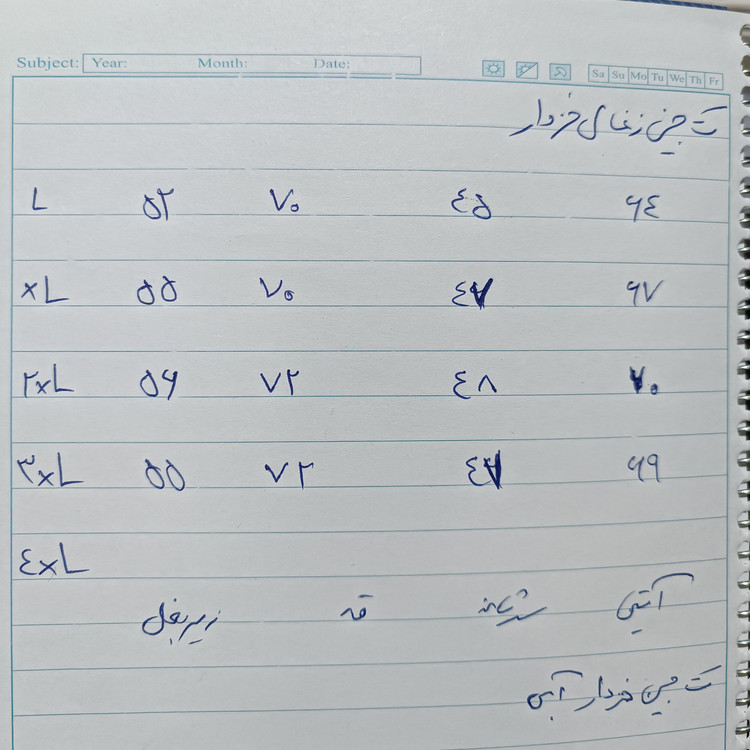 Subject: Year: Month: Date: Sa Su Mo Tu We Th Fr
کت جین زغالی خزدار
L ۵۲ ۷۰ ٤۵ ۶٤
xL ۵۵ ۷۰ ٤۷ ۶۷
۲xL ۵۶ ۷۲ ٤۸ ۷۰
۳xL ۵۵ ۷۲ ۶۹
٤xL
زیربغل قد سرشانه آستین
کت جین خزدار آبی